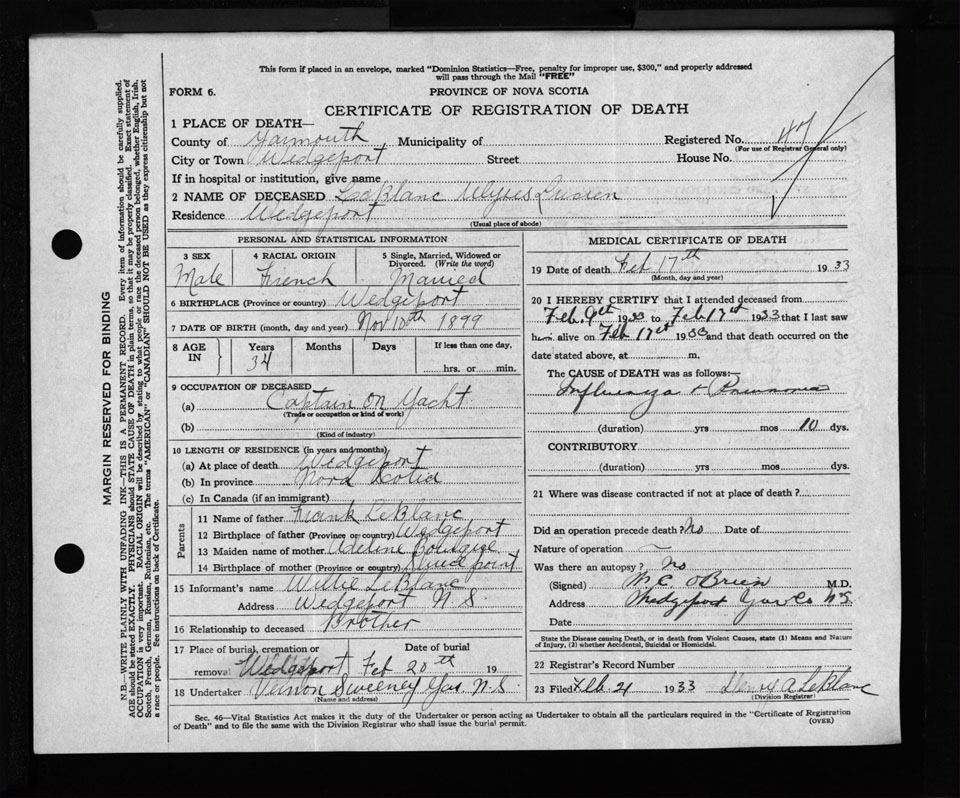 This form if placed in an envelope, marked "Dominion Statistics—Free, penalty for improper use, $300," and properly addressed
will pass through the Mail "FREE"
FORM 6.
PROVINCE OF NOVA SCOTIA
CERTIFICATE OF REGISTRATION OF DEATH
1 PLACE OF DEATH—
County of Yarmouth Municipality of Registered No. 47
(For use of Registrar General only)
City or Town Wedgeport Street House No.
If in hospital or institution, give name
2 NAME OF DECEASED LeBlanc Ulyses
Residence Wedgeport
(Usual place of abode)
PERSONAL AND STATISTICAL INFORMATION
3 SEX 4 RACIAL ORIGIN 5 Single, Married, Widowed or
Divorced. (Write the word)
Male French Married
6 BIRTHPLACE (Province or country) Wedgeport
7 DATE OF BIRTH (month, day and year) Nov 10th 1899
8 AGE IN Years Months Days If less than one day,
34 hrs. or min.
9 OCCUPATION OF DECEASED
(a) Captain on Yacht
(Trade or occupation or kind of work)
(b)
(Kind of industry)
10 LENGTH OF RESIDENCE (in years and months)
(a) At place of death Wedgeport
(b) In province Nova Scotia
(c) In Canada (if an immigrant)
Parents
11 Name of father Frank LeBlanc
12 Birthplace of father (Province or country) Wedgeport
13 Maiden name of mother Adeline
14 Birthplace of mother (Province or country) point
15 Informant's name Willie LeBlanc
Address Wedgeport N S.
16 Relationship to deceased Brother
17 Place of burial, cremation or Date of burial
removal Wedgeport Feb 20th 19
18 Undertaker Vernon Sweeney Yar N. S
(Name and address)
MEDICAL CERTIFICATE OF DEATH
19 Date of death Feb 17th 1933
(Month, day and year)
20 I HEREBY CERTIFY that I attended deceased from
Feb. 9th 1933 to Feb 17th 1933 that I last saw
him alive on Feb 17th 1933 and that death occurred on the
date stated above, at m.
The CAUSE OF DEATH was as follows:—
Influenza + Pneumonia
(duration) yrs mos 10 dys.
CONTRIBUTORY
(duration) yrs mos dys.
21 Where was disease contracted if not at place of death?
Did an operation precede death? No Date of
Nature of operation —
Was there an autopsy? No
(Signed) W. C. O'Brien M.D.
Address Wedgeport Yar Co N.S.
Date
State the Disease causing Death, or in death from Violent Causes, state (1) Means and Nature
of Injury, (2) whether Accidental, Suicidal or Homicidal.
22 Registrar's Record Number
23 Filed Feb. 21 1933 Henry A LeBlanc
(Division Registrar)
Sec. 46—Vital Statistics Act makes it the duty of the Undertaker or person acting as Undertaker to obtain all the particulars required in the "Certificate of Registration
of Death" and to file the same with the Division Registrar who shall issue the burial permit.
(OVER)
MARGIN RESERVED FOR BINDING
N.B.—WRITE PLAINLY WITH UNFADING INK—THIS IS A PERMANENT RECORD. Every item of information should be carefully supplied.
AGE should be stated EXACTLY. PHYSICIANS should STATE CAUSE OF DEATH in plain terms, so that it may be properly classified. Exact statement of
OCCUPATION is very important. RACIAL ORIGIN will be described by stating to what people or race the deceased person belonged, whether English, Irish,
Scotch, French, German, Russian, Ruthenian, etc. The terms "AMERICAN" or "CANADIAN" SHOULD NOT BE USED as they express citizenship but not
a race or people. See instructions on back of Certificate.